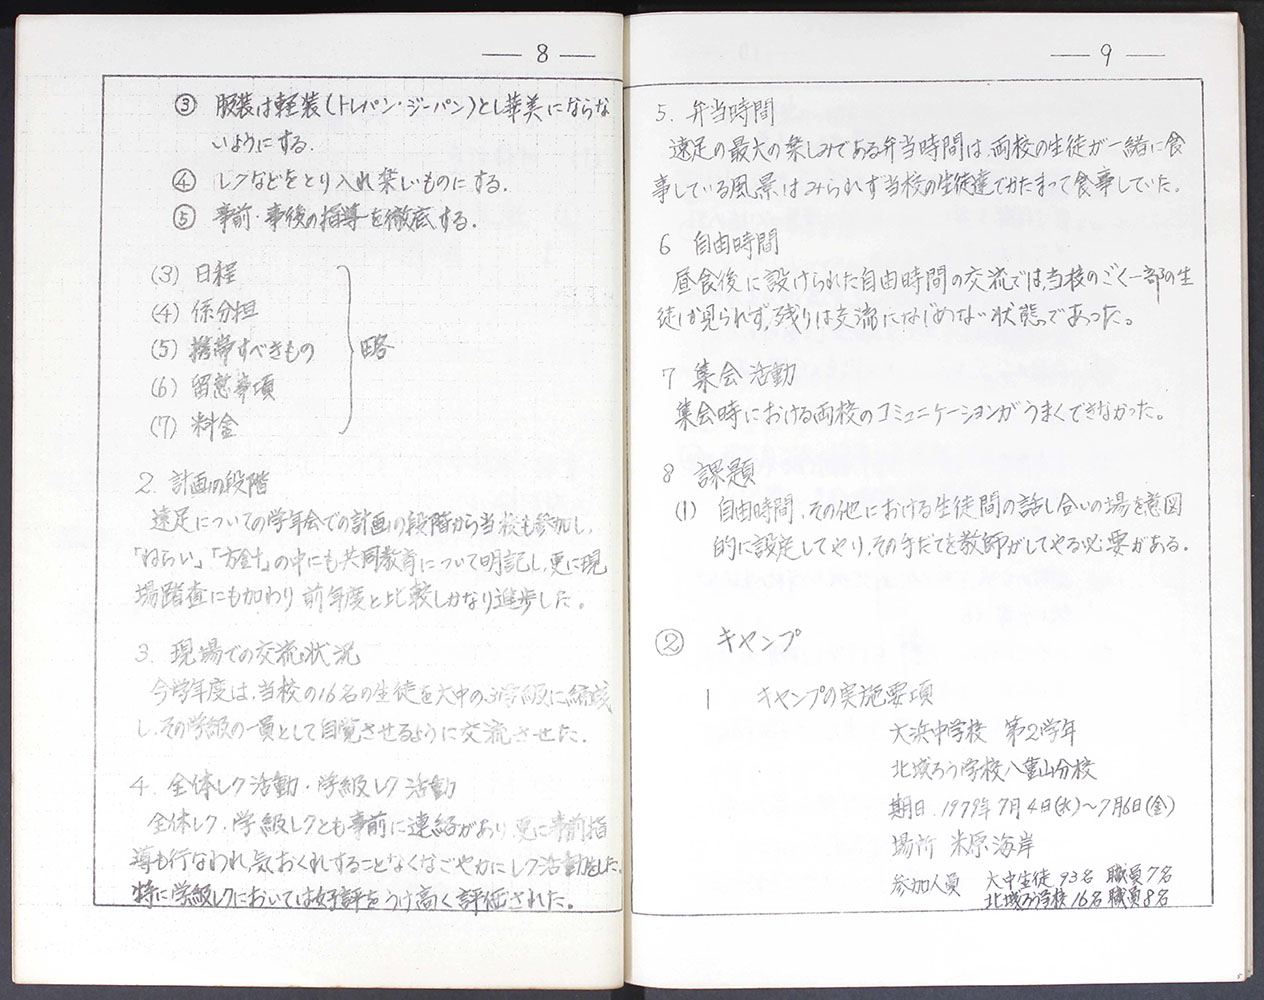 — 8 —
③ 服装は軽装(トレパン・ジーパン)とし華美にならな
いようにする.
④ レクなどをとり入れ楽しいものにする.
⑤ 事前・事後の指導を徹底する.
(3) 日程
(4) 係分担
(5) 携帯すべきもの
(6) 留意事項
(7) 料金
略
2. 計画の段階
遠足についての学年会での計画の段階から当校も参加し,
「ねらい」,「方針」の中にも共同教育について明記し,更に現
場踏査にも加わり前年度と比較しかなり進歩した。
3. 現場での交流状況
今学年度は,当校の16名の生徒を大中の3学級に編成
し,その学級の一員として自覚させるように交流させた.
4. 全体レク活動・学級レク活動
全体レク・学級レクとも事前に連絡があり,更に事前指
導も行なわれ,気おくれすることなくなごやかにレク活動をした.
特に学級レクにおいては好評をうけ高く評価された。
— 9 —
5. 弁当時間
遠足の最大の楽しみである弁当時間は,両校の生徒が一緒に食
事している風景はみられず当校の生徒達でかたまって食事していた。
6 自由時間
昼食後に設けられた自由時間の交流では,当校のごく一部の生
徒しか見られず,残りは交流になじめない状態であった。
7 集会活動
集会時における両校のコミュニケーションがうまくできなかった。
8 課題
(1) 自由時間,その他における生徒間の話し合いの場を意図
的に設定してやり,その手だてを教師がしてやる必要がある.
② キャンプ
1 キャンプの実施要項
大浜中学校 第2学年
北城ろう学校八重山分校
期日.1979年7月4日(水)~7月6日(金)
場所 米原海岸
参加人員 大中生徒 93名 職員7名
北城ろう学校 16名 職員8名